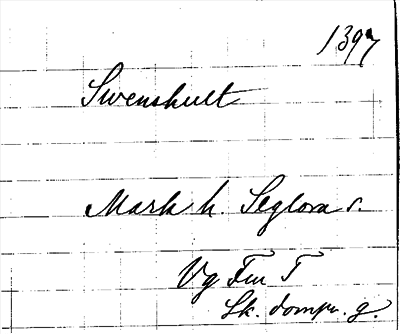 1397
Swenshult
Mark h. Seglora s.
Vg Fu T
Sk. dompr. g.